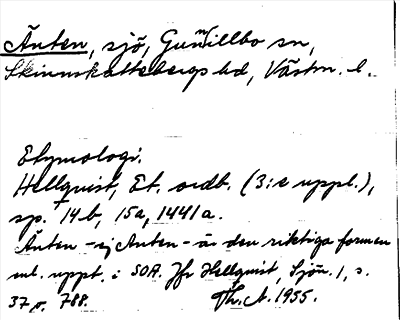 Änten, sjö, Gunnillbo sn,
Skinnskattebergs hd, Västm. l.
Etymologi.
Hellquist, Et. ordb. (3:e uppl.),
sp. 14 b, 15a, 1441a.
Änten - ej Anten - är den riktiga formen
enl. uppt. i SOA. Jfr Hellquist, Sjön. 1, s.
37 o. 788. Th. A. 1955.